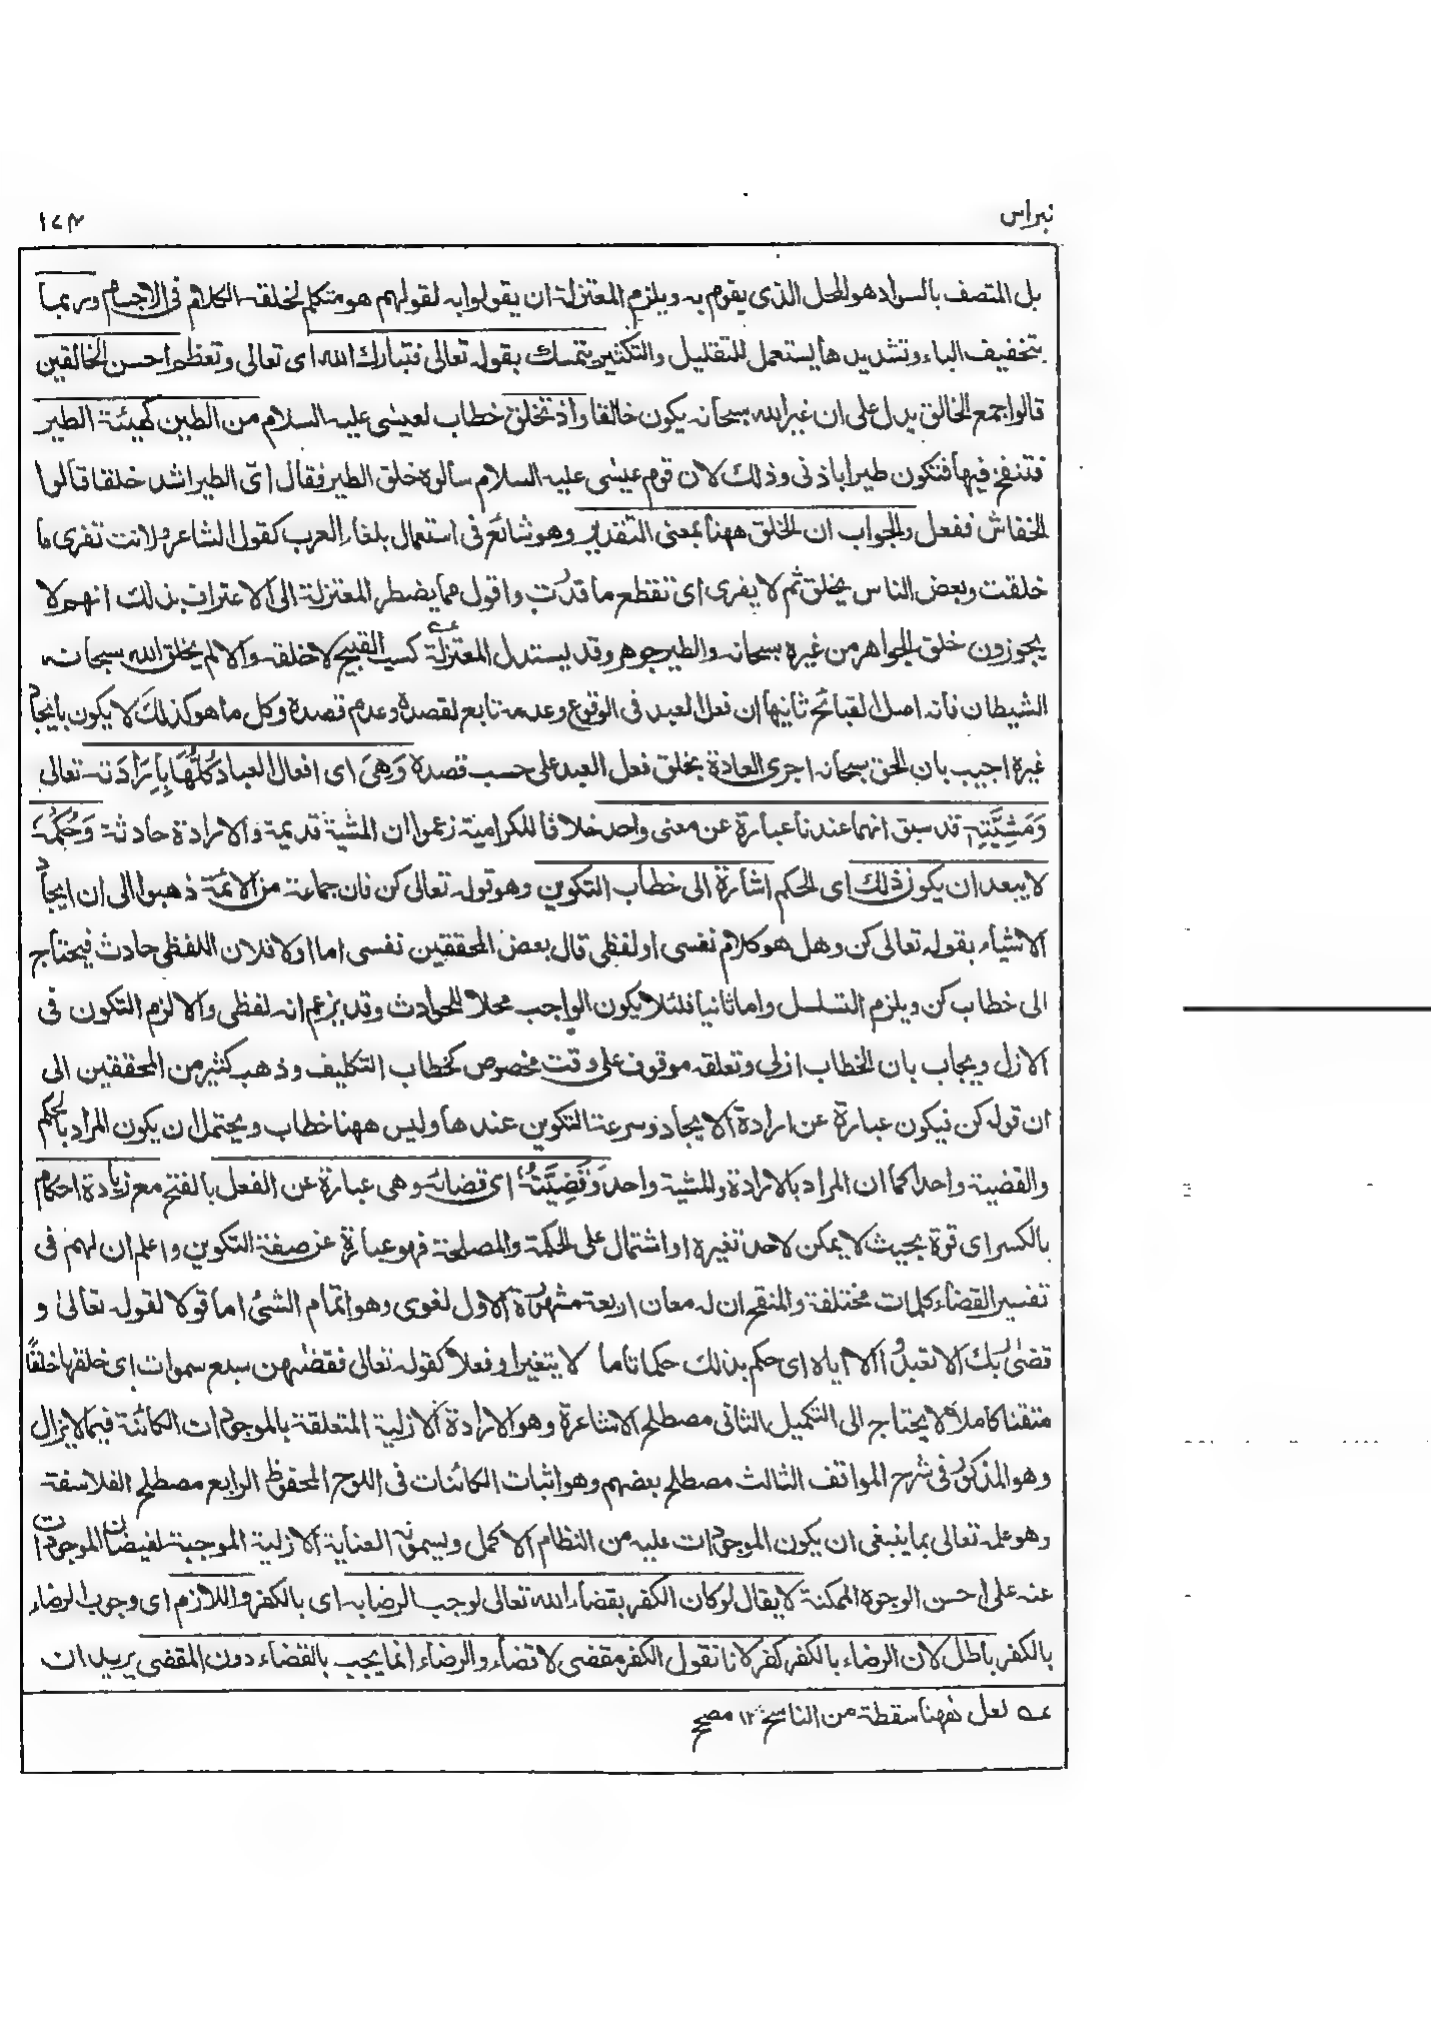 نبراس
١٧٣
بل المتصف بالسواد هو المحل الذى يقوم به ويلزم المعتزلة ان يقولوا به لقولهم هو متكلم لخلقه الكلام فى الاجسام وربما
بتخفيف الباء وتشديدها يستعمل للتقليل والتكثير يتمسك بقوله تعالى فتبارك الله اى تعالى وتعظم احسن الخالقين
قالوا جمع الخالق يدل على ان غير الله سبحانه يكون خالقا واذ تخلق خطاب لعيسى عليه السلام من الطين كهيئة الطير
فتنفخ فيها فتكون طيرا باذنى وذلك لان قوم عيسى عليه السلام سألوه خلق الطير فقال اىّ الطير اشد خلقا قالوا
الخفاش ففعل والجواب ان الخلق ههنا بمعنى التقدير وهو شائع فى استعمال بلغاء العرب كقول الشاعر ولانت تفرى ما
خلقت وبعض الناس يخلق ثم لا يفرى اى تقطع ما قدرت واقول مما يضطر المعتزلة الى الاعتراف بذلك انهم لا
يجوزون خلق الجواهر من غيره سبحانه والطير جوهر وقد يستدل المعتزلة عه كسب القبيح لا خلقه والا لم يخلق الله سبحانه
الشيطان فانه اصل القبائح ثانيها ان فعل العبد فى الوقوع وعدمه تابع لقصده وعدم قصده وكل ما هو كذلك لا يكون بايجاد
غيره اجيب بان الحق سبحانه اجرى العادة بخلق فعل العبد على حسب قصده وَهِىَ اى افعال العباد كُلُّهَا بِاِرَادَتِه تعالى
وَمَشِيَّتِه قد سبق انهما عندنا عبارة عن معنى واحد خلافا للكرامية زعموا ان المشية قديمة والارادة حادثة وَحُكْمِه
لا يبعد ان يكون ذلك اى الحكم اشارة الى خطاب التكوين وهو قوله تعالى كن فان جماعة من الائمة ذهبوا الى ان ايجاد
الاشياء بقوله تعالى كن وهل هو كلام نفسى او لفظى قال بعض المحققين نفسى اما اولا فلان اللفظى حادث فيحتاج
الى خطاب كن ويلزم التسلسل واما ثانيا فلئلا يكون الواجب محلا للحوادث وقد يزعم انه لفظى والا لزم التكون فى
الازل ويجاب بان الخطاب ازلى وتعلقه موقوف على وقت مخصوص كخطاب التكليف وذهب كثير من المحققين الى
ان قوله كن فيكون عبارة عن ارادة الايجاد وسرعة التكوين عندها وليس ههنا خطاب ويحتمل ان يكون المراد بالحكم
والقضية واحدا كما ان المراد بالارادة والمشية واحد وَقَضِيَّتِه اى قضائه وهى عبارة عن الفعل بالفتح مع زيادة احكام
بالكسر اى قوة بحيث لا يمكن لاحد تغييره او اشتمال على الحكمة والمصلحة فهو عبارة عن صفة التكوين واعلم ان لهم فى
تفسير القضاء كلمات مختلفة والمنقح ان له معان اربعة مشهورة الاول لغوى وهو اتمام الشئ اما قولا لقوله تعالى و
قضى ربك الا تعبدوا الا اياه اى حكم بذلك حكما تاما لا يتغير او فعلا كقوله تعالى فقضهن سبع سموات اى خلقها خلقًا
متقنا كاملا لا يحتاج الى التكميل الثانى مصطلح الاشاعرة وهو الارادة الازلية المتعلقة بالموجودات الكائنة فيما لا يزال
وهو المذكور فى شرح المواقف الثالث مصطلح بعضهم وهو اثبات الكائنات فى اللوح المحفوظ الرابع مصطلح الفلاسفة
وهو علمه تعالى بما ينبغى ان يكون الموجودات عليه من النظام الاكمل ويسمونه العناية الازلية الموجبة لفيضان الموجودات
عنه على احسن الوجوه الممكنة لا يقال لو كان الكفر بقضاء الله تعالى لوجب الرضا به اى بالكفر واللازم اى وجوب الرضاء
بالكفر باطل لان الرضاء بالكفر كفر لانا نقول الكفر مقضى لا قضاء والرضاء انما يجب بالقضاء دون المقضى يريد ان
عه لعل ههنا سقطة من الناسخ ١٢ مصحح